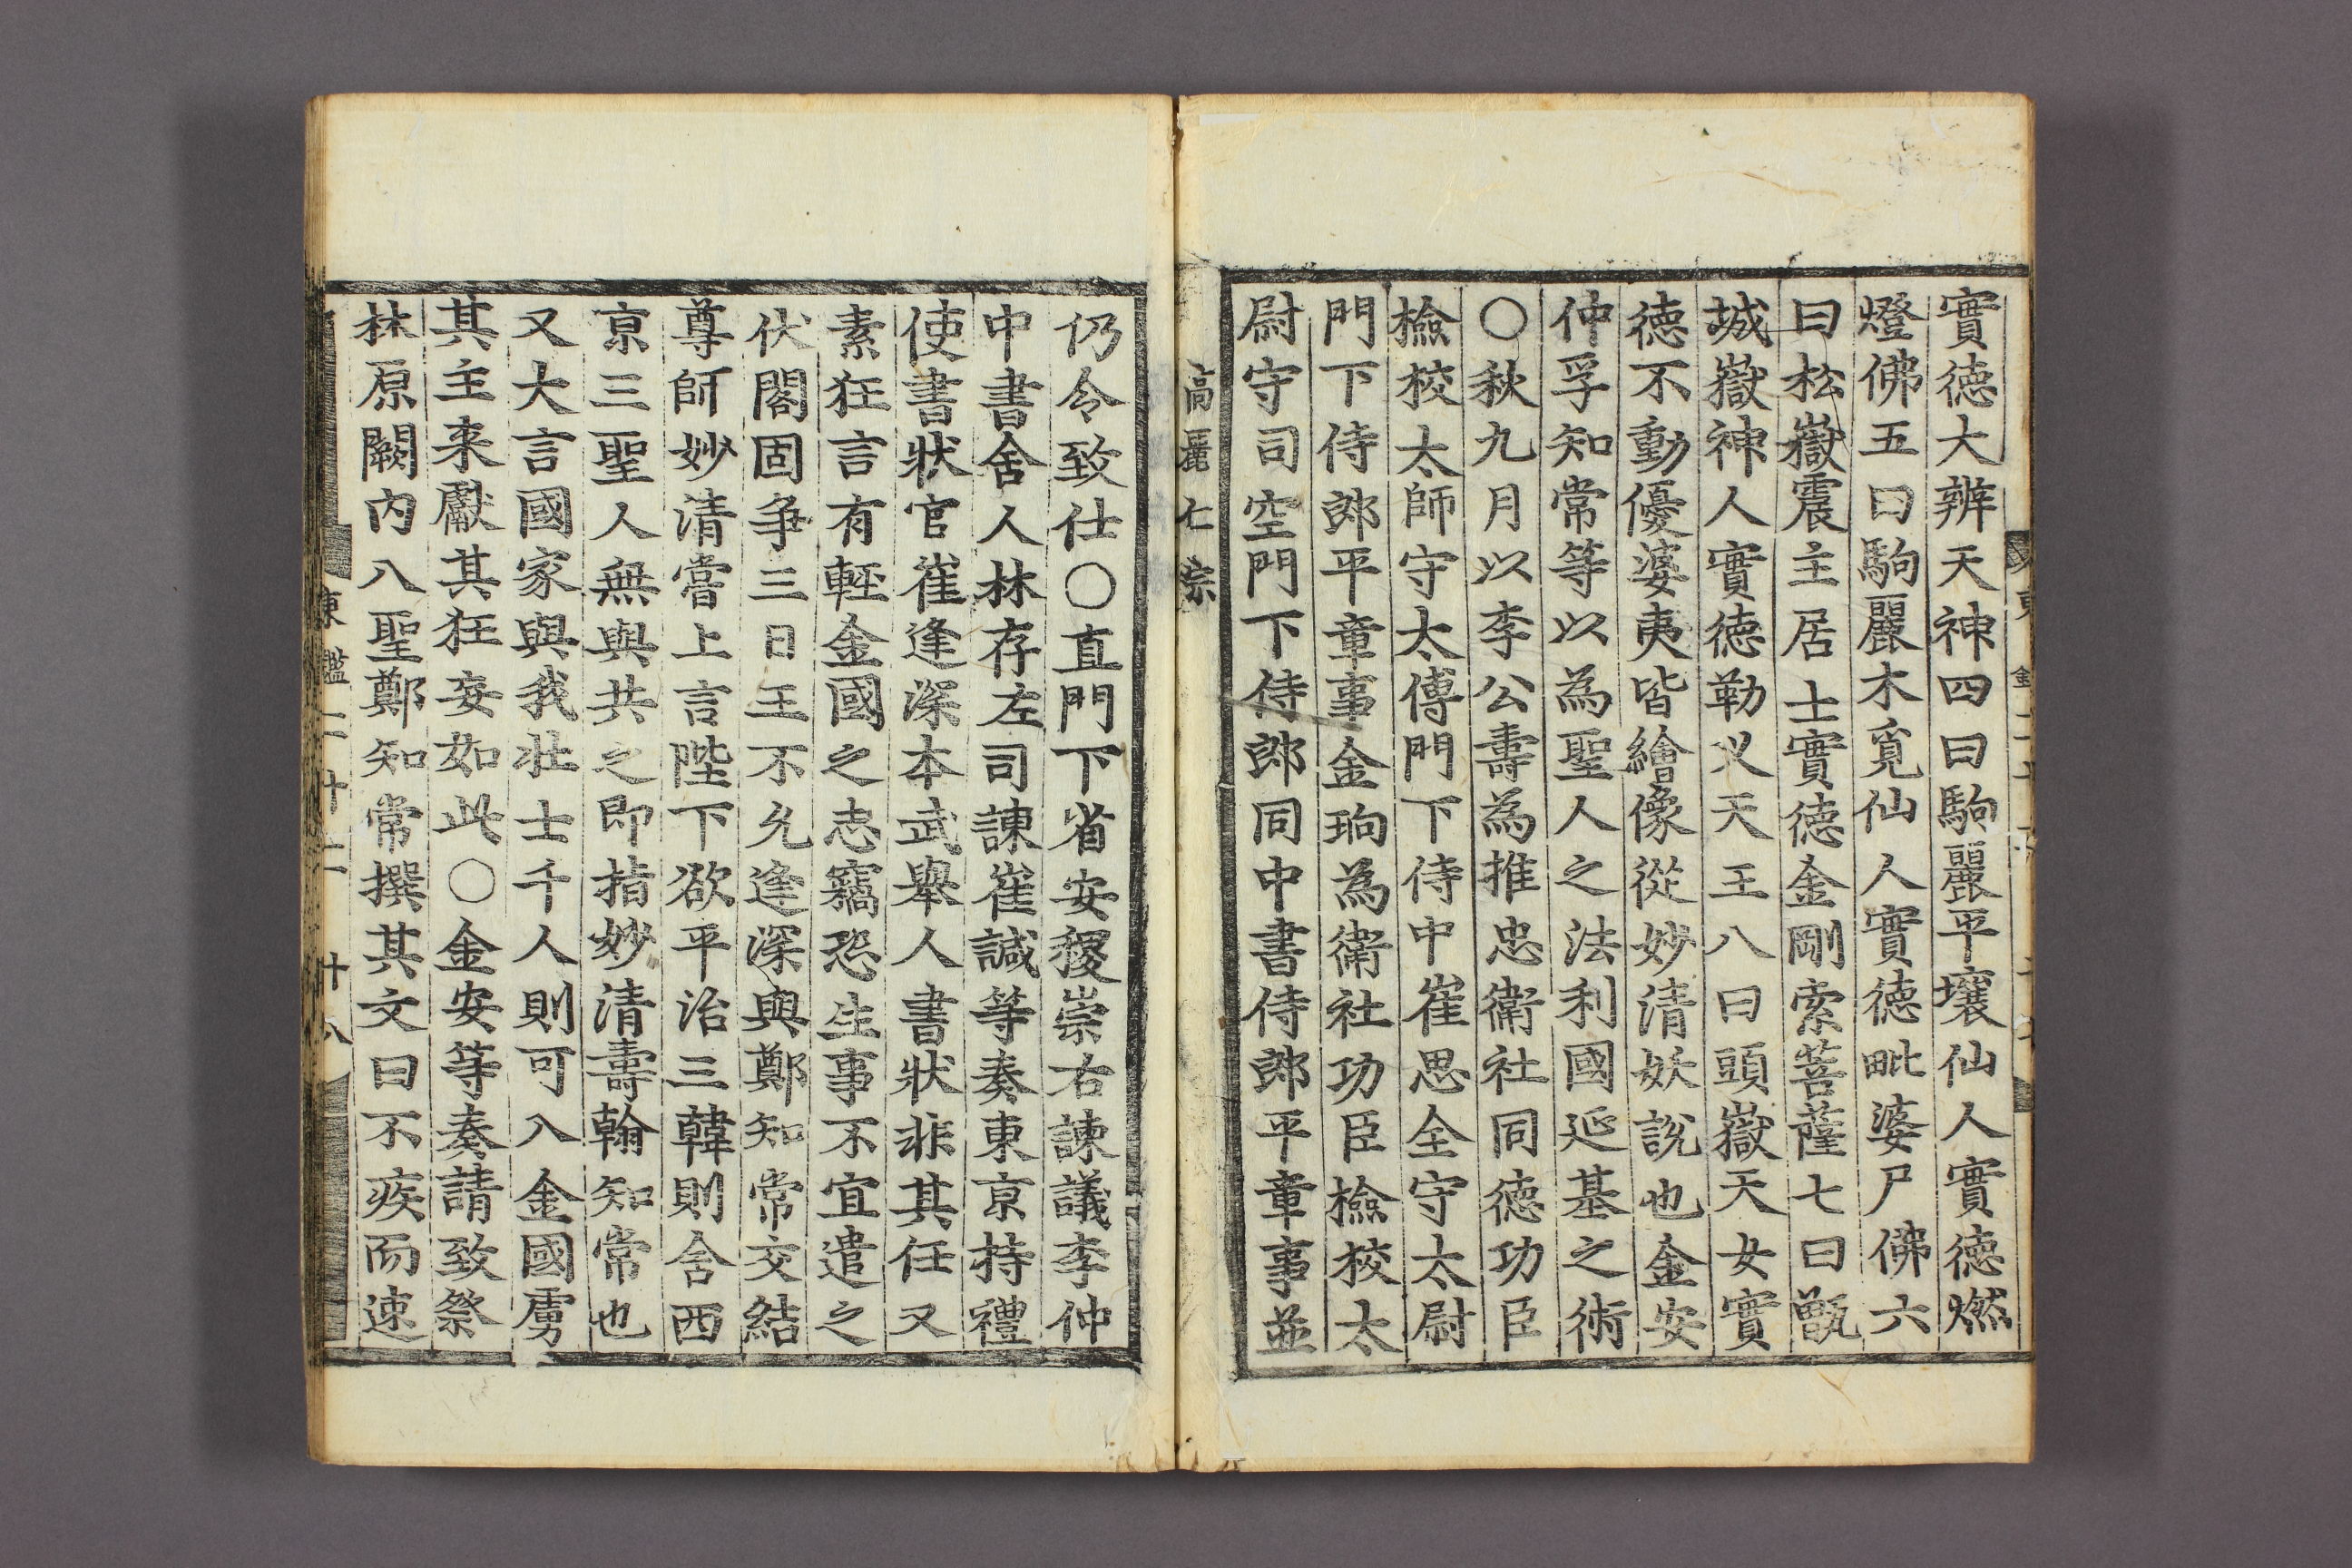 實德大辨天神四曰駒麗平壤仙人實德燃
燈佛五曰駒麗木覓仙人實德毗婆尸佛六
曰松嶽震主居士實德金剛索菩薩七曰甑
城嶽神人實德勒义天王八曰頭嶽天女實
德不動優婆夷皆繪像從妙淸妖說也金安
仲孚知常等以為聖人之法利國延基之術
○秋九月以李公壽為推忠衛社同德功臣
檢校太師守太傅門下侍中崔思全守太尉
門下侍郎平章事金珦為衛社功臣檢校太
尉守司空門下侍郎同中書侍郎平章事並
高麗仁宗
仍令致仕○直門下省安稷崇右諫議李仲
中書舍人林存左司諫崔諴等奏東京持禮
使書狀官崔逢深本武舉人書狀非其任又
素狂言有輕金國之志竊恐生事不宜遣之
伏閤固爭三日王不允逢深與鄭知常交結
尊師妙淸嘗上言陛下欲平治三韓則舍西
京三聖人無與共之即指妙淸壽翰知常也
又大言國家與我壯士千人則可入金國虜
其主来獻其狂妄如此○金安等奏請致祭
林原闕內八聖鄭知常撰其文曰不疾而速
東鑑二十二 十八